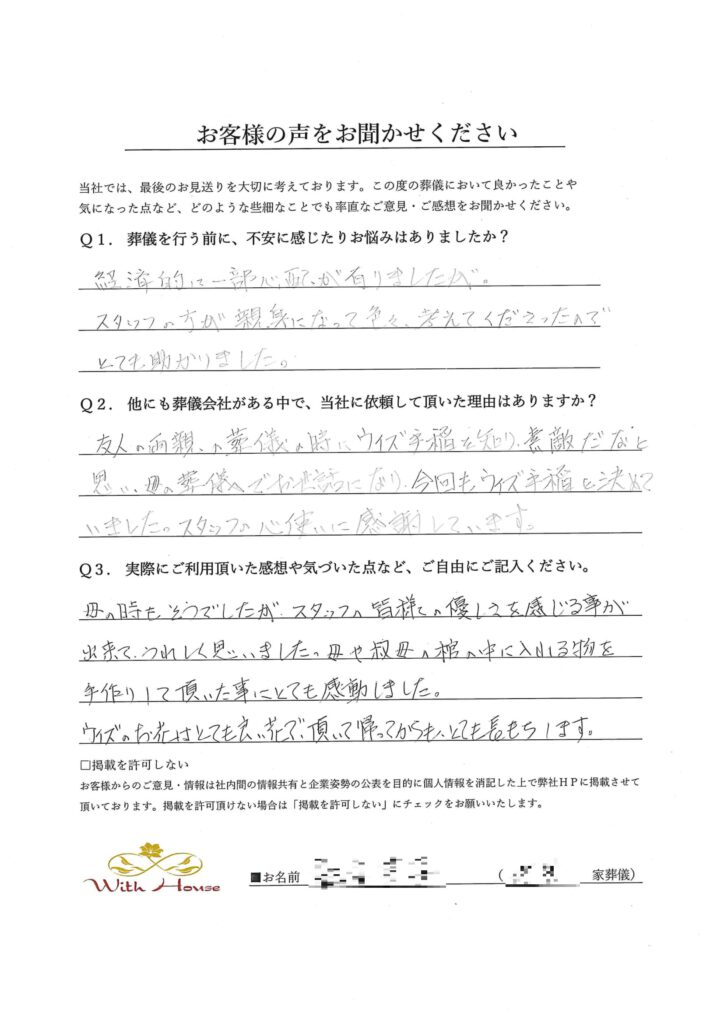 お客様の声をお聞かせください
当社では、最後のお見送りを大切に考えております。この度の葬儀において良かったことや
気になった点など、どのような些細なことでも率直なご意見・ご感想をお聞かせください。
Q1. 葬儀を行う前に、不安に感じたりお悩みはありましたか？
経済的に一部心配が有りましたが。
スタッフの方が親身になって色々、考えてくださったので
とても助かりました。
Q2. 他にも葬儀会社がある中で、当社に依頼して頂いた理由はありますか？
友人の両親、の葬儀の時にウイズ手稲を知り、素敵だなと
思い、母の葬儀でお世話になり、今回もウィズ手稲と決めて
いました。スタッフの心使いに感謝しています。
Q3. 実際にご利用頂いた感想や気づいた点など、ご自由にご記入ください。
母の時もそうでしたが、スタッフの皆様の優しさを感じる事が
出来て、うれしく思いました。母や叔母の棺の中に入れる物を
手作りして頂いた事にとても感動しました。
ウィズのお花はとても良い花で、頂いて帰ってからも、とても長もちします。
□掲載を許可しない
お客様からのご意見・情報は社内間の情報共有と企業姿勢の公表を目的に個人情報を消記した上で弊社ＨＰに掲載させて
頂いております。掲載を許可頂けない場合は「掲載を許可しない」にチェックをお願いいたします。
With House
■お名前 （ 家葬儀）